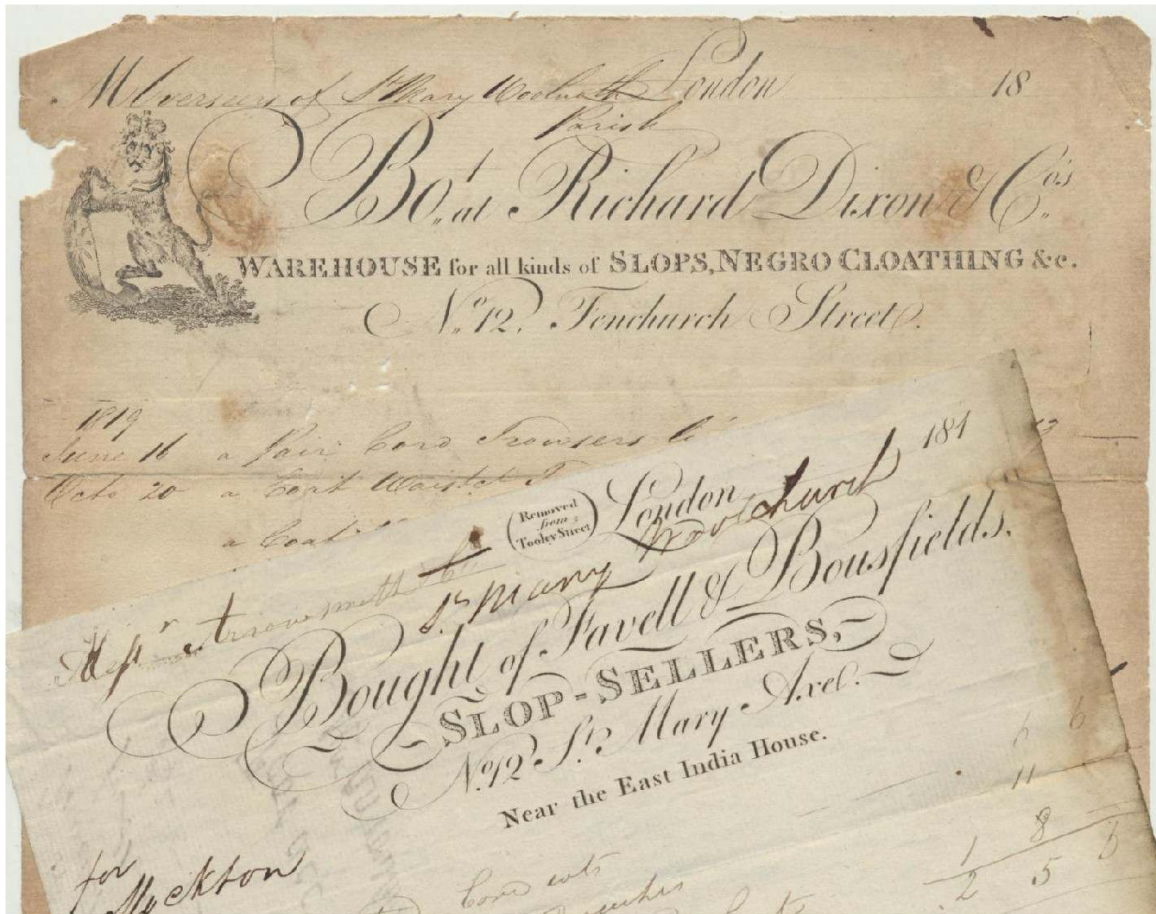 Overseers of St. Mary Woolnoth London 18
Parish
Bot. at Richard Dixon & Co's.
WAREHOUSE for all kinds of SLOPS, NEGRO CLOATHING &c.
No. 12. Fenchurch Street.
1819
June 16 a Pair Cord Trowsers
Octo 20 a Coat Waistct
a Coat
Removed
from
Tooley Street
London 181
St Mary Woolchurch
Bought of Favell & Bousfields,
SLOP-SELLERS,
No. 12 St. Mary Axe.
Near the East India House.
6 6
11
for
Cord
1 8
2 5 6